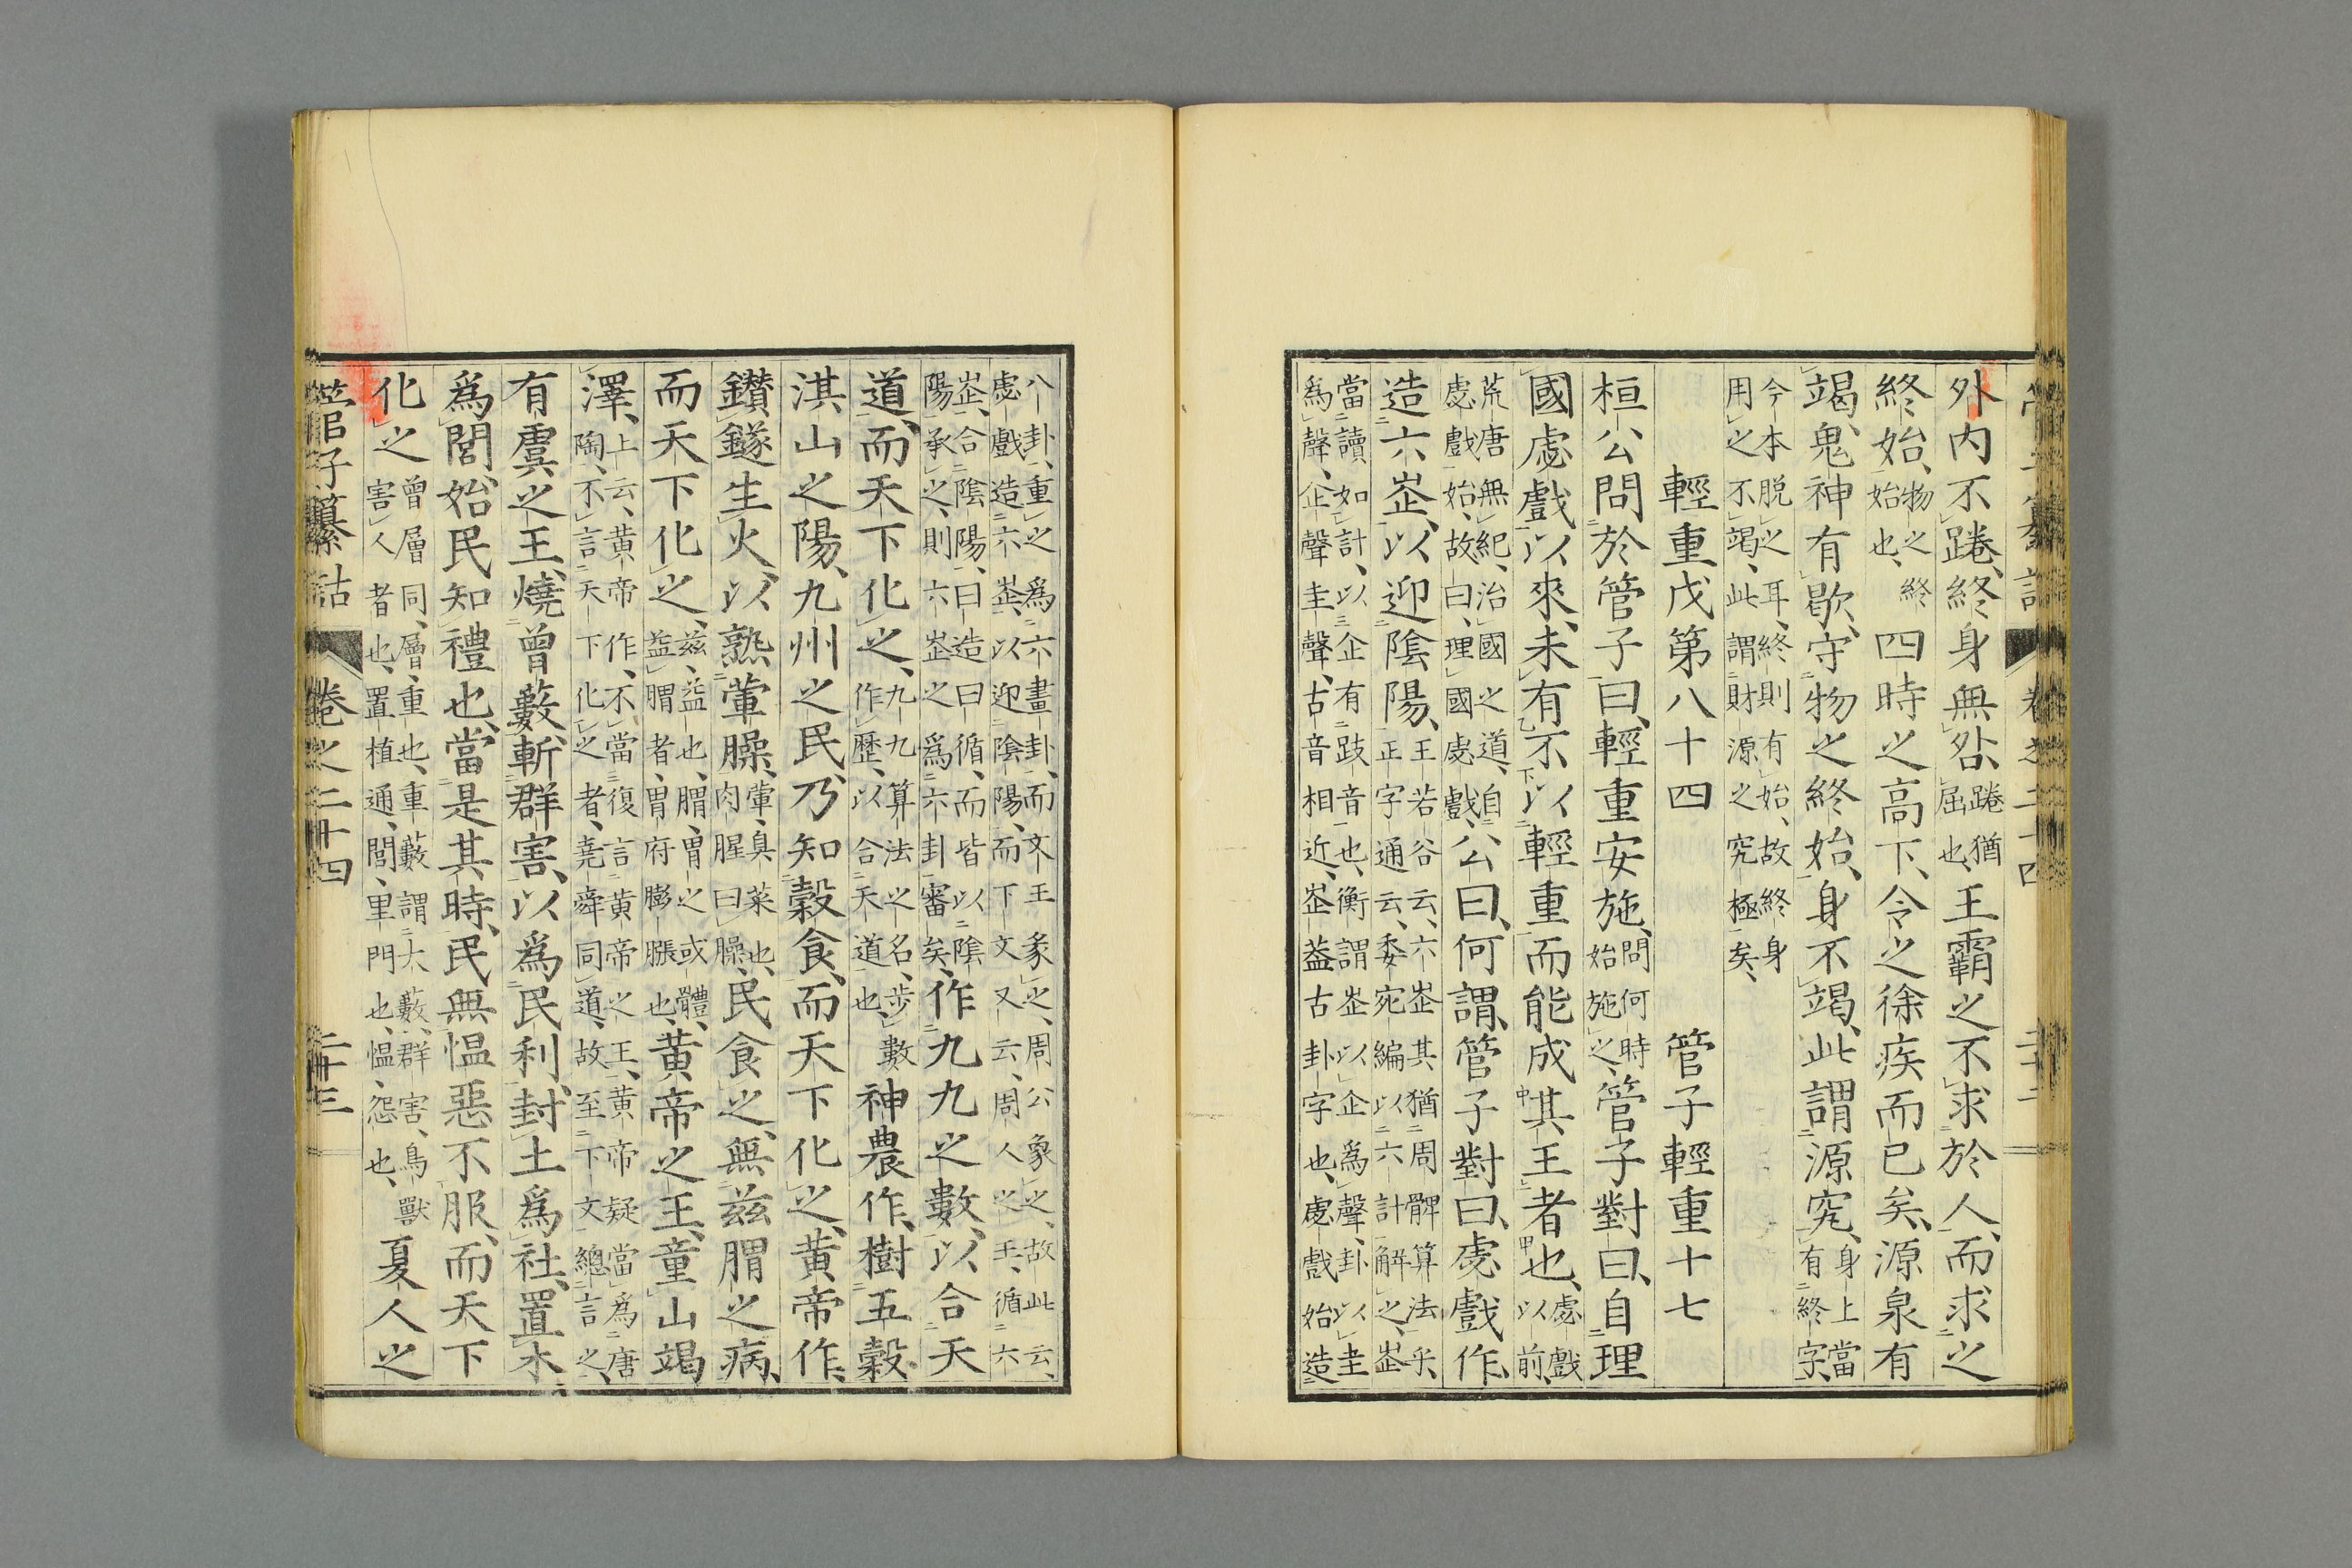 外内不踡、終身無咎、踡猶屈也、王霸之不求於人、而求之
終始、物之終始也、四時之高下、令之徐疾而已矣、源泉有
竭、鬼神有歇、守物之終始、身不竭、此謂源究、身上當有終字、
今本脱之耳、終則有始、故終身用之不竭、此謂財源之究極矣、
輕重戊第八十四　管子輕重十七
桓公問於管子曰、輕重安施、問何時始施之、管子對曰、自理
國虙戲以來、未有不以輕重而能成其王者也、虙戲以前、
荒唐無紀、治國之道、自虙戲始、故曰、理國虙戲、公曰、何謂、管子對曰、虙戲作、
造六峜、以迎陰陽、王若谷云、六峜其猶周髀算法乎、正字通云、委宛編以六計解之、峜
當讀如計、以企有跂音也、衡謂峜以企爲聲、卦以圭爲聲、企聲圭聲、古音相近、峜葢古卦字也、虙戲始造
八卦、重之爲六畫卦、而文王象之、周公象之、故此云、虙戲造六峜、以迎陰陽、而下文又云、周人之王、循六
峜、合陰陽、曰造曰循、而皆以陰陽承之、則六峜之爲六卦審矣、作九九之數、以合天
道、而天下化之、九九算法之名、步數作歷、以合天道也、神農作、樹五穀
淇山之陽、九州之民、乃知穀食、而天下化之、黄帝作、
鑽鐩生火、以熟葷臊、葷、臭菜也、肉腥曰臊、民食之、無兹䐜之病、
而天下化之、兹、益也、䐜、胃之或體、益䐜者、胃府膨脹也、黄帝之王、童山竭
澤、上云、黄帝作、不當復言黄帝之王、黄帝疑當爲唐陶、不言天下化之者、堯舜同道、故至下文總言之、
有虞之王、燒曾藪、斬群害、以爲民利、封土爲社、置木
爲閭、始民知禮也、當是其時、民無愠惡不服、而天下
化之、曾層同、層、重也、重藪謂大藪、群害、鳥獸害人者也、置植通、閭、里門也、愠、怨也、夏人之
管子纂詁　卷之二十四　二十三